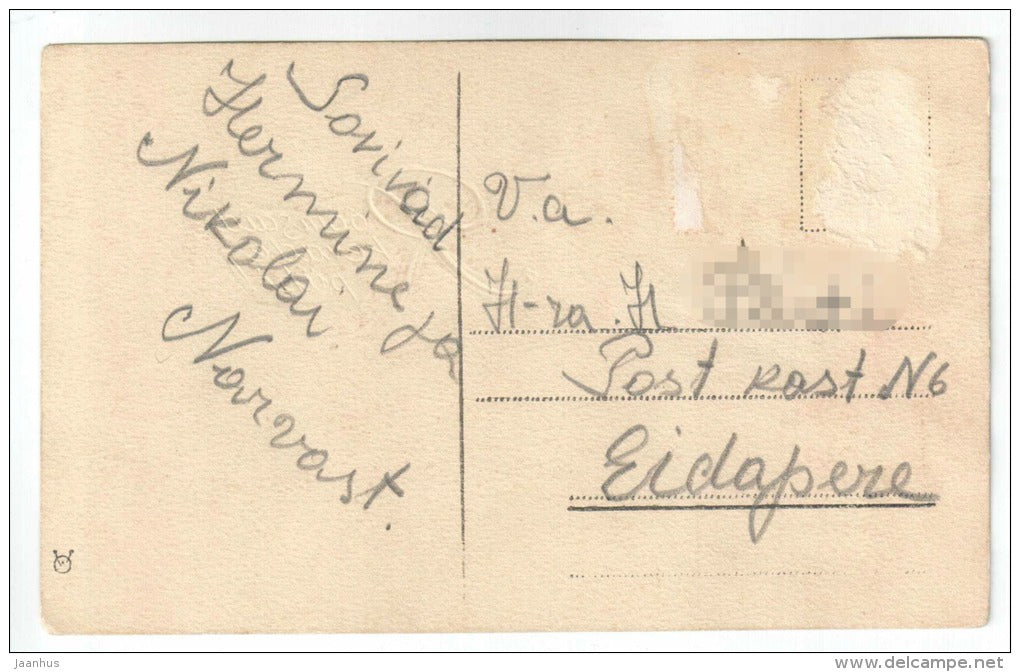 Sovivad
Hermine ja
Nikolai
Narvast.
V.a.
H-ra. H
Post kast N6
Eidapere
Jaanhus
www.delcampe.net